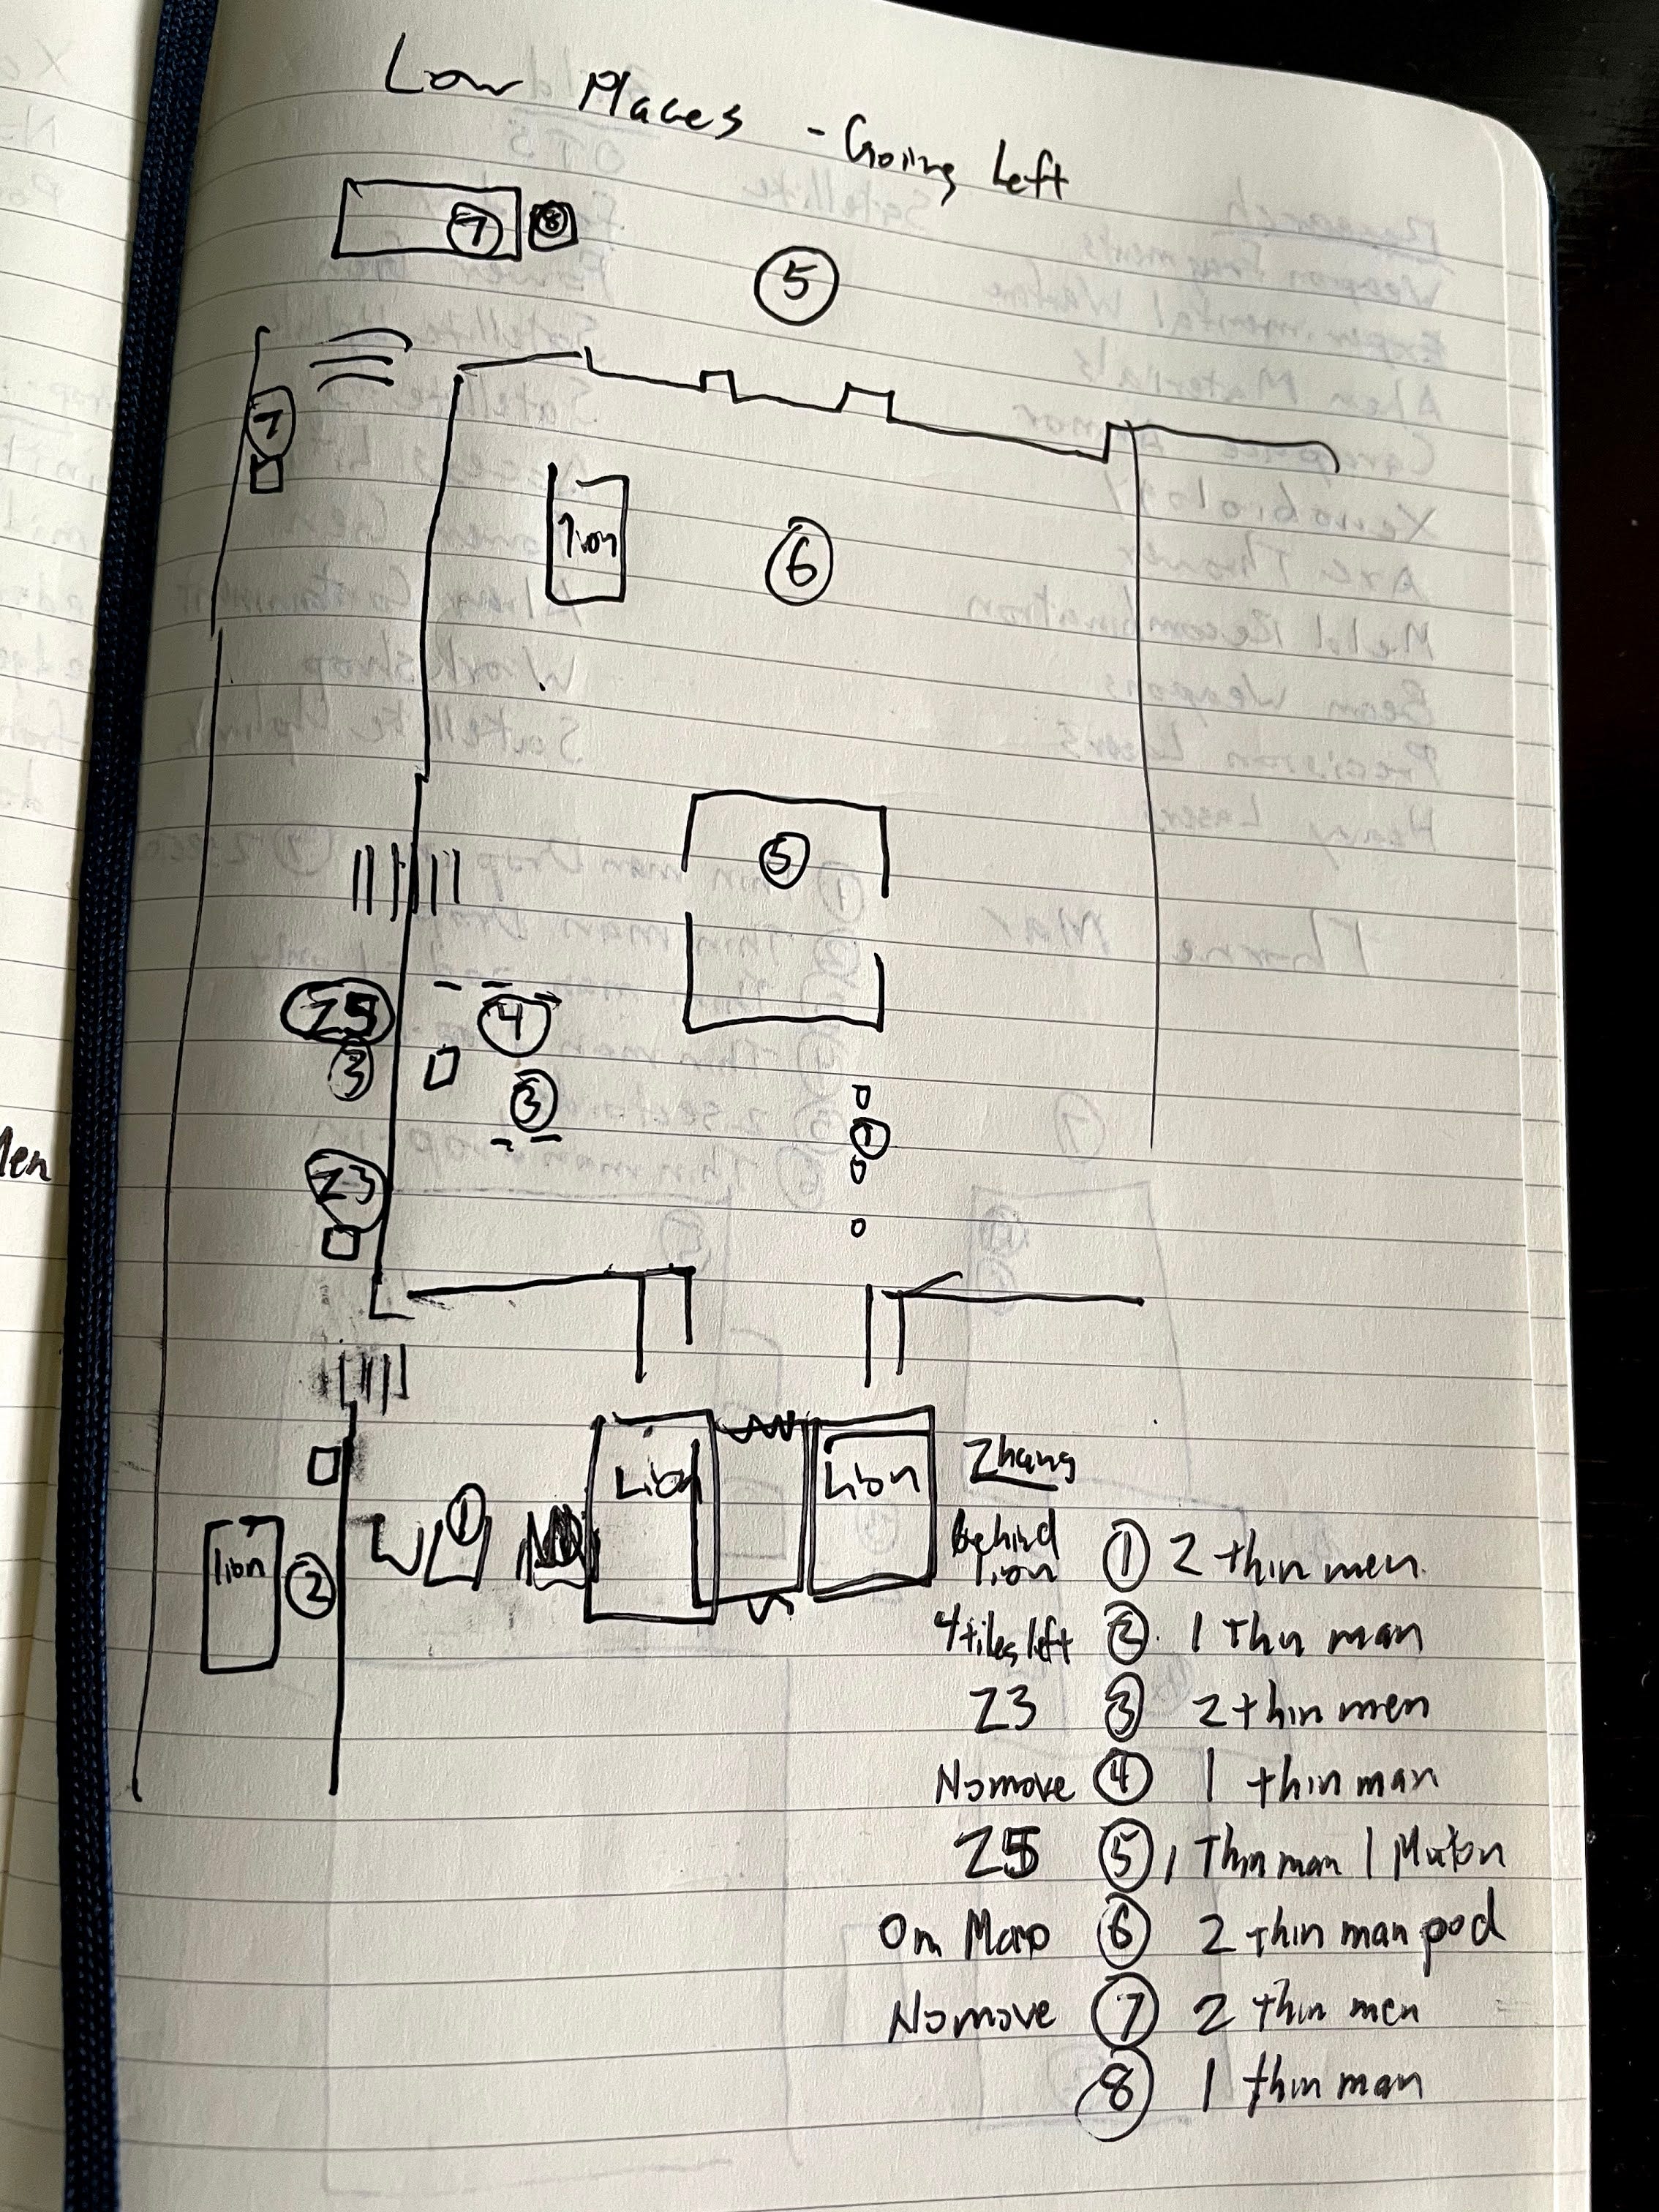 Low Places - Going Left
7 8
5
7
lion
6
5
Z5 4
3 3
1
Z3
Lion Lion
1
lion 2
Zhang
Behind lion ① 2 thin men
4 tiles left ② 1 thin man
Z3 ③ 2 thin men
No move ④ 1 thin man
Z5 ⑤ 1 Thin man 1 Muton
On Map ⑥ 2 thin man pod
No move ⑦ 2 thin men
⑧ 1 thin man
Men